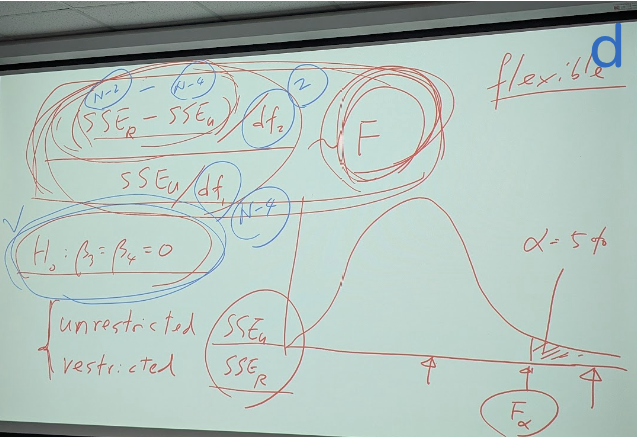 d
flexible
N-2 - N-4 2
(SSE_R - SSE_u) / df_2
SSE_u / df_1
~ F
N-4
H_0 : β_3 = β_4 = 0
α = 5%
{ unrestricted
restricted
SSE_u
SSE_R
F_α